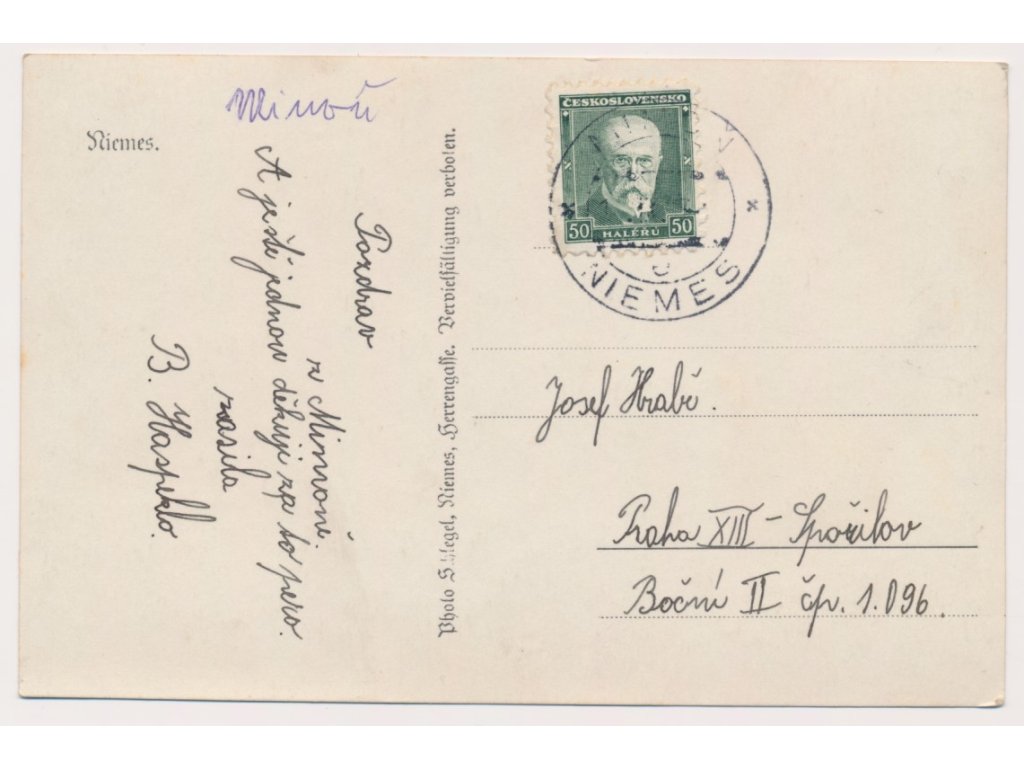 Niemes.
Minoň
Pozdrav
z Mimoně.
A ještě jednou děkuji za to pero.
zasílá
B. Haspeklo.
Photo Schlegel, Niemes, Herrengasse. Vervielfältigung verboten.
ČESKOSLOVENSKO
50 HALÉŘŮ 50
NIEMES
Josef Hrabě.
Praha XIII – Spořilov
Boční II čp. 1.096.